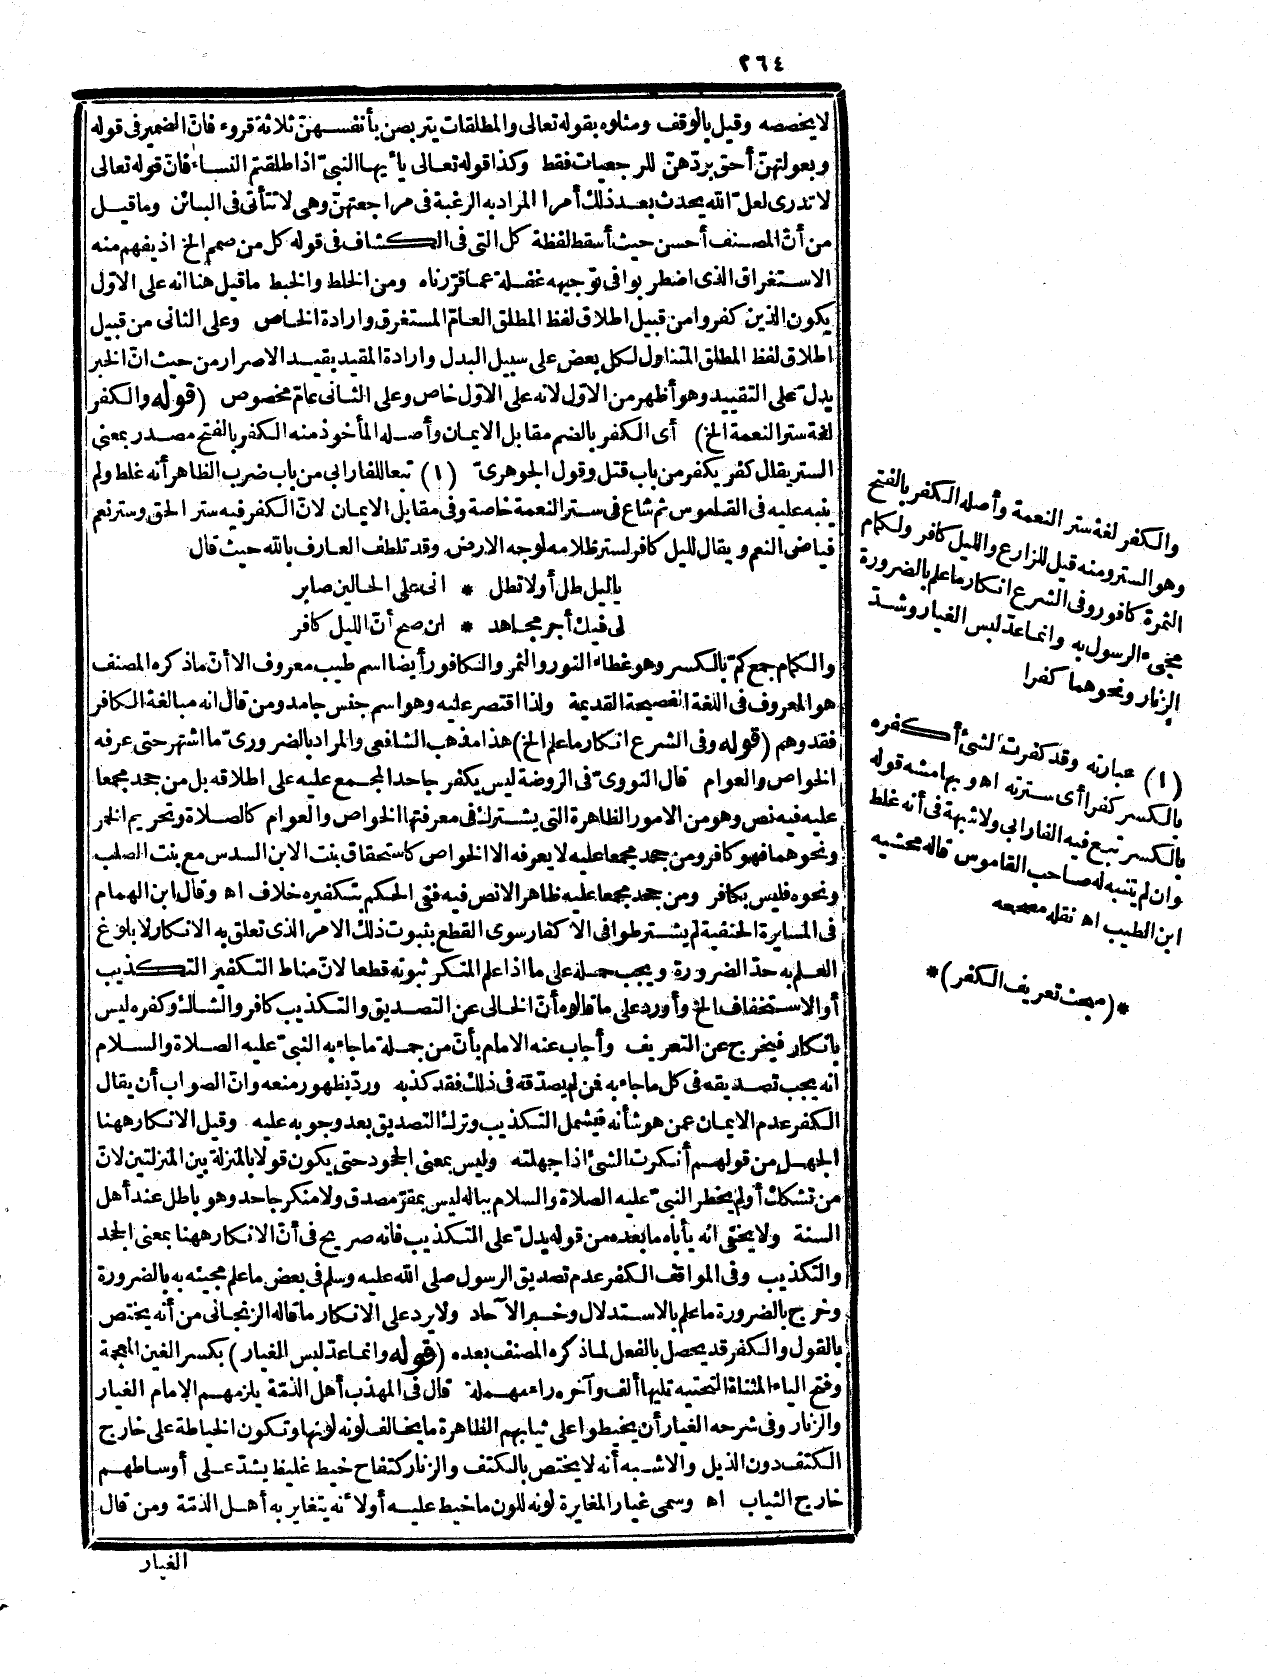 ٢٦٤
لا يخصصه وقيل بالوقف ومثلوه بقوله تعالى والمطلقات يتربصن بأنفسهنّ ثلاثة قروء فانّ الضمير فى قوله
وبعولتهنّ أحق بردّهنّ للرجعيات فقط وكذا قوله تعالى يا أيها النبيّ اذا طلقتم النساء فانّ قوله تعالى
لا تدرى لعلّ الله يحدث بعد ذلك أمرا المراد به الرغبة فى مراجعتهنّ وهى لا تتأتى فى البائن وما قيل
من أنّ المصنف أحسن حيث أسقط لفظة كل التى فى الكشاف فى قوله كل من صمم الخ اذ يفهم منه
الاستغراق الذى اضطربوا فى توجيهه غفلة عما قرّرناه ومن الخلط والخبط ما قيل هنا انه على الاوّل
يكون الذين كفروا من قبيل اطلاق لفظ المطلق العامّ المستغرق وارادة الخاص وعلى الثانى من قبيل
اطلاق لفظ المطلق المتناول لكل بعض على سبيل البدل وارادة المقيد بقيد الاصرار من حيث انّ الخبر
يدلّ على التقييد وهو أظهر من الاوّل لانه على الاوّل خاص وعلى الثانى عامّ مخصوص (قوله والكفر
لغة ستر النعمة الخ) أى الكفر بالضم مقابل الايمان وأصله المأخوذ منه الكفر بالفتح مصدر بمعنى
الستر يقال كفر يكفر من باب قتل وقول الجوهرىّ (١) تبعا للفارابى من باب ضرب الظاهر أنه غلط ولم
ينبه عليه فى القاموس ثم شاع فى ستر النعمة خاصة وفى مقابل الايمان لانّ الكفر فيه ستر الحق وستر نعم
فياض النعم ويقال لليل كافر لستر ظلامه لوجه الارض وقد تلطف العارف بالله حيث قال
يا ليل طل أولا تطل * انى على الحالين صابر
لى فيك أجر مجاهد * ان صح أنّ الليل كافر
والكمام جمع كمّ بالكسر وهو غطاء النور والثمر والكافور أيضا اسم طيب معروف الا أنّ ما ذكره المصنف
هو المعروف فى اللغة الفصيحة القديمة ولذا اقتصر عليه وهو اسم جنس جامد ومن قال انه مبالغة الكافر
فقد وهم (قوله وفى الشرع انكار ما علم الخ) هذا مذهب الشافعى والمراد بالضرورىّ ما اشتهر حتى عرفه
الخواص والعوام قال النووىّ فى الروضة ليس يكفر جاحد المجمع عليه على اطلاقه بل من جحد مجمعا
عليه فيه نص وهو من الامور الظاهرة التى يشترك فى معرفتها الخواص والعوام كالصلاة وتحريم الخمر
ونحوهما فهو كافر ومن جحد مجمعا عليه لا يعرفه الا الخواص كاستحقاق بنت الابن السدس مع بنت الصلب
ونحوه فليس بكافر ومن جحد مجمعا عليه ظاهر الا نص فيه ففى الحكم بتكفيره خلاف اه وقال ابن الهمام
فى المسايرة الحنفية لم يشترطوا فى الاكفار سوى القطع بثبوت ذلك الامر الذى تعلق به الانكار لا بلوغ
العلم به حدّ الضرورة ويجب حمله على ما اذا علم المنكر ثبوته قطعا لانّ مناط التكفير التكذيب
أو الاستخفاف الخ وأورد على ما قالوه أنّ الخالى عن التصديق والتكذيب كافر والشاك وكفره ليس
بانكار فيخرج عن التعريف وأجاب عنه الامام بأنّ من جملة ما جاء به النبيّ عليه الصلاة والسلام
انه يجب تصديقه فى كل ما جاء به فمن لم يصدّقه فى ذلك فقد كذبه وردّ بظهور منعه وانّ الصواب أن يقال
الكفر عدم الايمان عمن هو شأنه فيشمل التكذيب وترك التصديق بعد وجوبه عليه وقيل الانكار ههنا
الجهل من قولهم أنكرت الشئ اذا جهلته وليس بمعنى الجحود حتى يكون قولا بالمنزلة بين المنزلتين لانّ
من تشكك أو لم يخطر النبيّ عليه الصلاة والسلام بباله ليس بمقرّ مصدق ولا منكر جاحد وهو باطل عند أهل
السنة ولا يخفى انه يأباه ما بعده من قوله يدلّ على التكذيب فانه صريح فى أنّ الانكار ههنا بمعنى الجحد
والتكذيب وفى المواقف الكفر عدم تصديق الرسول صلى الله عليه وسلم فى بعض ما علم مجيئه به بالضرورة
وخرج بالضرورة ما علم بالاستدلال وخبر الآحاد ولا يرد على الانكار ما قاله الزنجانى من أنه يختص
بالقول والكفر قد يحصل بالفعل لما ذكره المصنف بعده (قوله وانما عدّ لبس الغيار) بكسر الغين المعجمة
وفتح الياء المثناة التحتيه تليها ألف وآخره راء مهملة قال فى المهذب أهل الذمّة يلزمهم الامام الغيار
والزنار وفى شرحه الغيار أن يخيطوا على ثيابهم الظاهرة ما يخالف لونه لونها وتكون الخياطة على خارج
الكتف دون الذيل والاشبه أنه لا يختص بالكتف والزنار كتفاح خيط غليظ يشدّ على أوساطهم
خارج الثياب اه وسمى غيار المغايرة لونه للون ما خيط عليه أو لأنه يتغاير به أهل الذمّة ومن قال
الغيار
والكفر لغة ستر النعمة وأصله الكفر بالفتح
وهو الستر ومنه قيل للزارع والليل كافر ولكمام
الثمرة كافور وفى الشرع انكار ما علم بالضرورة
مجىء الرسول به وانما عدّ لبس الغيار وشدّ
الزنار ونحوهما كفرا
(١) عبارته وقد كفرت الشئ أكفره
بالكسر كفرا أى سترته اه وبهامشه قوله
بالكسر تبع فيه الفارابى ولا شبهة فى أنه غلط
وان لم يتنبه له صاحب القاموس قاله محشيه
ابن الطيب اه نقله مصححه
*(مبحث تعريف الكفر)*